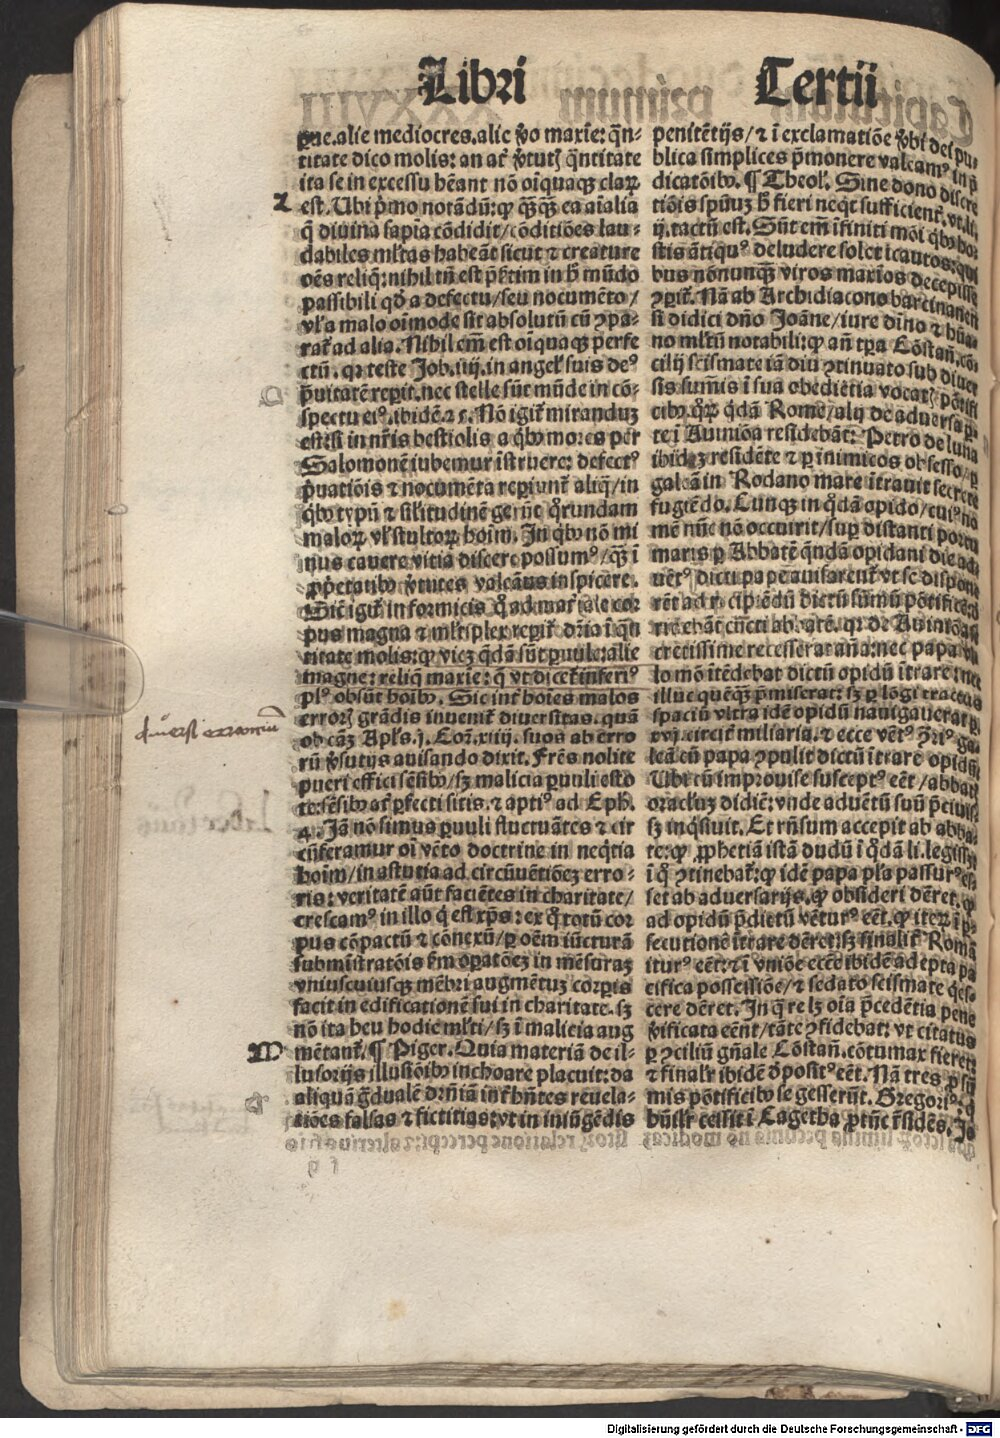 Libri Tertii
pue.alie mediocres.alie ꝟo maxie: q̄n-
titate dico molis: an at̄ ꝟtutꝭ q̄ntitate
ita se in excessu hēant nō oīquaqꝫ claꝝ
Z
est. Ubi p̄mo notādū: ꝙ q̄ꝫqꝫ ea aīalia
q̄ divina sapīa cōdidit/cōditiōes lau-
dabiles ml̄tas habeāt sicut ⁊ creature
oēs reliq̄: nihil tn̄ est p̄sertim in h̄ mūdo
passibili qd̓ a defectu/seu nocumēto/
vl̓ a malo oīmode sit absolutū cū ꝯpa-
rat̄ ad alia. Nihil em̄ est oīquaqꝫ perfe
ctū. qꝛ teste Job.iiij. in angel̓ suis deꝰ
p̄uitatē reꝑit. nec stelle sūt mūde in cō-
spectu eiꝰ. ibidē 25. Nō igit̄ miranduꝫ
est si in nr̄is bestiolis a q̄bꝰ mores per
Salomonē iubemur īstruere: defectꝰ
p̄uatiōis ⁊ nocumēta reꝑiunt̄ aliq̄/in
q̄bꝰ typū ⁊ sil̓itudinē gerūt q̄rundam
maloꝝ vl̓ stultoꝝ hoīm. In q̄bꝰ nō mi
nus cavere vitia discere possumꝰ/qꝫ ī
ꝓp̓etatibꝰ ꝟtutes valeāus inspicere.
Sic igit̄ in formicis q̄ ad mat̓iale cor
pus magna ⁊ ml̓tiplex reꝑit̄ dr̄ia ī q̄n
titate molis: ꝙ vicꝫ q̄dā sūt ꝑuule: alie
magne: reliq̄ maxie: q̄ vt dicet̄ inferiꝰ
pl̓ꝰ obsūt hoībꝰ. Sic int̄ hoīes malos
erroꝝ grādis invenit̄ diversitas. quā
diversi errorum
ob cāꝫ Apl̓s.j. Coꝝ.xiiij. suos ab erro
rū ꝟsutijs avisando dixit. Frēs nolite
pueri effici sēsibꝰ/sꝫ malicia ꝑuuli esto
te: sēsibꝰ at̄ ꝑfecti sitis. ⁊ aptiꝰ ad Eph.
4. Jā nō simus ꝑuuli fluctuātes ⁊ cir
cūferamur oī vēto doctrine in neq̄tia
hoīm/in astutia ad circūvētiōeꝫ erro-
ris: veritatē aūt faciētes in charitate/
crescamꝰ in illo q̄ est xp̄s: ex q̄ totū cor
pus cōpactū ⁊ cōnexū/ꝑ oēm iūcturā
submīstratōis s̄m oꝑatōeꝫ in mēsuraꝫ
vniuscuiusqꝫ mēbri augmētuꝫ corꝑis
facit in edificationē sui in charitate. sꝫ
nō ita heu hodie ml̓ti/sꝫ ī malicia aug
M
mētant̄. ¶ Piger. Quia materiā de il-
lusorijs illusiōibꝰ inchoare placuit: da
aliquā q̄dualē dr̄n̄iā int̄ hn̄tes revela-
tiōes falsas ⁊ fictitias: vt in iniūgēdis
penitētijs/⁊ ī exclamatiōe ꝟbi dei pu-
blica simplices p̄monere valeamꝰ in p̄
dicatōibꝰ. ¶ Theol̓. Sine dono discre
tiōis spūuꝫ h̄ fieri neqt̄ sufficient̄, vt.li.
ij. tactū est. Sūt em̄ īfiniti mōi q̄bꝰ ho-
stis ātiquꝰ deludere solet icautos: qui
bus nōnunqꝫ viros maxios decepisse
ꝯꝑit̄. Nā ab Archidiacono barcinanen
si didici dn̄o Joāne/iure dīno ⁊ hūa-
no ml̓tū notabili: ꝙ an̄ tꝑa Cōstan̄.cō-
cilij scismate iā diu ꝯtinuato sub diuer
sis sum̄is ī sua obediētia vocatꝭ pōtifi
cibꝰ. q̄ꝝ q̄dā Rome/alij de adversa ꝑ-
te ī Auiniōa residebāt: Petro de luna
ibideꝫ residēte ⁊ ꝑ inimicos obsesso/ꝑ
galeā in Rodano mare ītrauit secrete
fugiēdo. Cunqꝫ in q̄dā opido/cuiꝰ no
mē nūc nō occurrit/suꝑ distanti portu
maris ꝑ Abbatē q̄ndā opidani die ad
uētꝰ dicti pape auisarent̄ vt se dispone
rēt ad recipiēdū dictū sūmū pōtificē:
ridebāt cūcti abbatē. qꝛ de Auiniōa se
cretissime recesserat an̄a: nec papa vl
lo mō itēdebat dictū opidū ītrare: nec
illuc quēqꝫ p̄miserat: sꝫ ꝑ lōgi tractus
spaciū vltra idē opidū nauigauerat ꝑ
xvj. circit̄ miliaria. ⁊ ecce vētꝰ ꝯt̄riꝰ ga-
leā cū papa ꝯpulit dictū ītrare opidū.
Ubi cū improuise susceptꝰ eēt/abbatꝭ
oraclūꝫ didicit: vnde aduētū suū p̄ciuis
sꝫ inq̄siuit. Et rn̄sum accepit ab abba-
te: ꝙ ꝓphetiā istā dudū ī q̄dā li. legisset
ī q̄ ꝯtinebat̄: ꝙ idē papa pl̓a passurꝰ es-
set ab aduersarijs. ꝙ obsideri dēret. ꝙ
ad opidū p̄dictū vēturꝰ eēt. ꝙ iteꝝ ī ꝑ-
secutionē ītrare dēret: sꝫ finalit̄ Romā
iturꝰ eēt: ⁊ ī vniōe ecc̄e ibidē adepta pa
cifica possessiōe/⁊ sedato scismate q̄es-
cere dēret. In q̄ re lꝫ oīa p̄cedētia pene
ꝟificata eēnt/tāte ꝯfidebat: vt citatus
ꝑ ꝯciliū gn̄ale Cōstan̄. cōtumax fieret:
⁊ final̓r ibidē dpositꝰ eēt. Nā tres ꝓ sū
mis pōtificibꝰ se gesserūt. Gregoriꝰ. q̄
hūil̓r cessit ī Cagetha ꝓtūc r̄sidēs. Jo
Digitalisierung gefördert durch die Deutsche Forschungsgemeinschaft - DFG